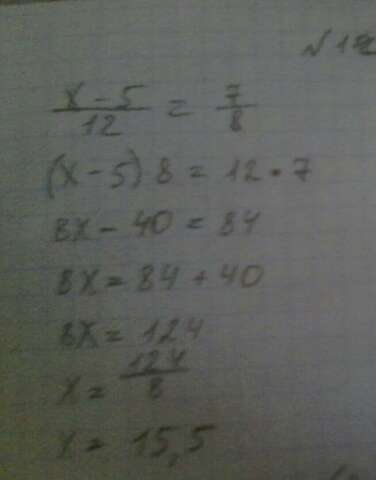 x-5/12 = 7/8
(x-5)8 = 12•7
8x-40 = 84
8x = 84+40
8x = 124
x = 124/8
x = 15,5